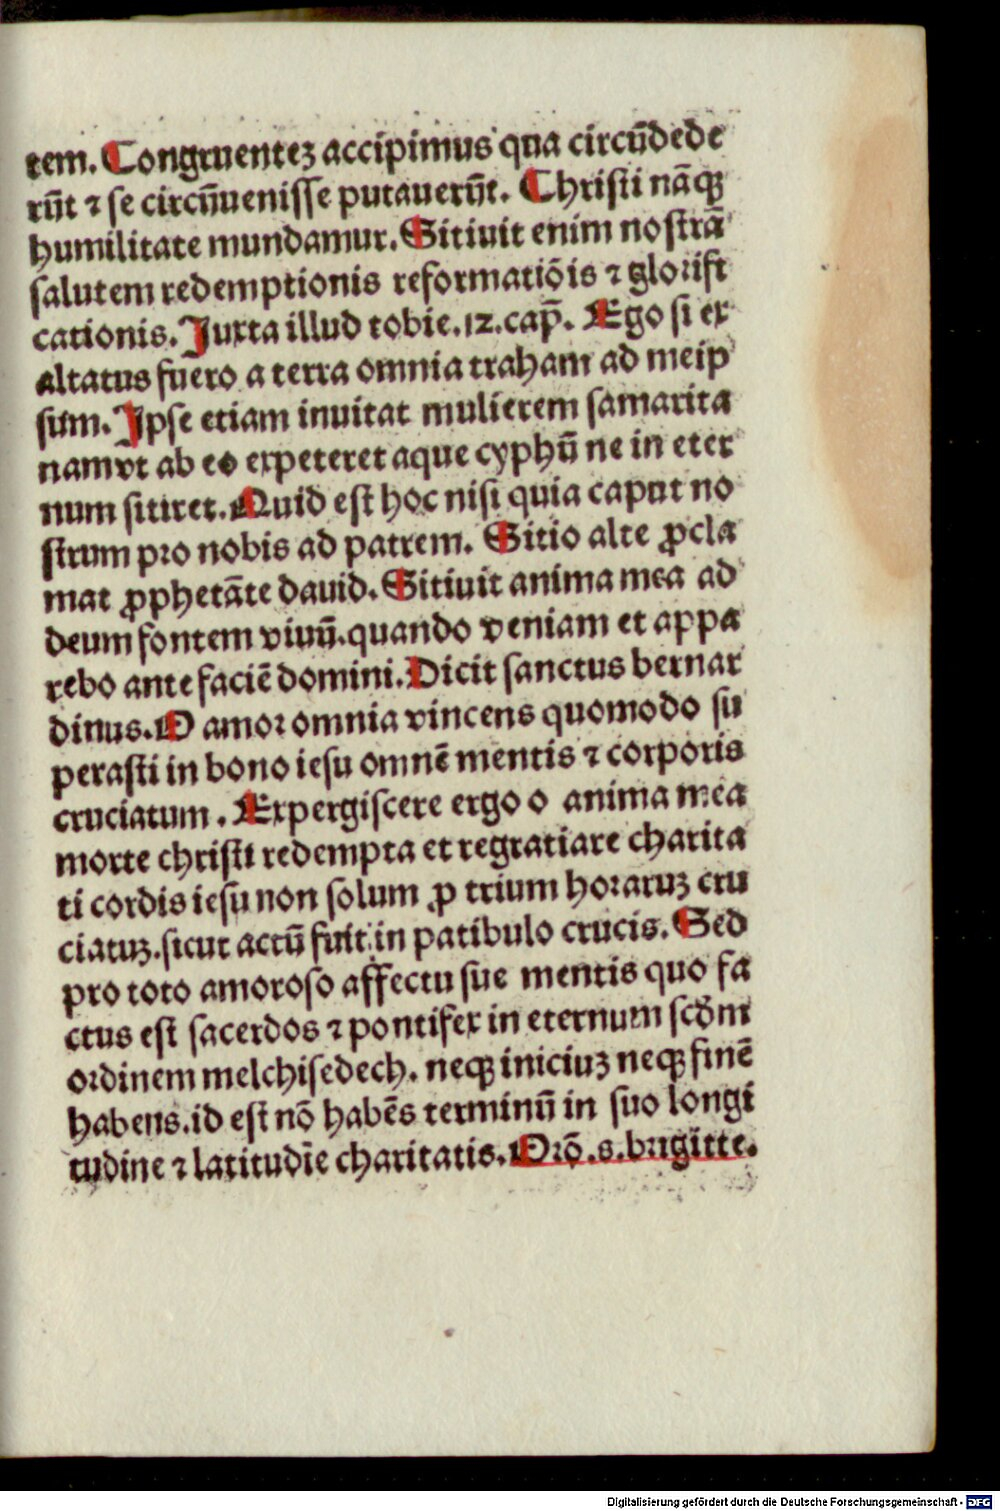 tem. Congruentez accipimus qua circūdede
rūt ⁊ se circūuenisse putauerūt. Christi nāqꝫ
humilitate mundamur. Sitiuit enim nostrā
salutem redemptionis reformatiōis ⁊ glorifi
cationis. Juxta illud tobie.12.cap̄. Ego si ex
altatus fuero a terra omnia traham ad meip
sum. Ipse etiam inuitat mulierem samarita
nam vt ab eo expeteret aque cyphū ne in eter
num sitiret. Quid est hoc nisi quia caput no
strum pro nobis ad patrem. Sitio alte ꝓcla
mat ꝓphetāte dauid. Sitiuit anima mea ad
deum fontem viuū.quando veniam et appa
rebo ante faciē domini. Dicit sanctus bernar
dinus. O amor omnia vincens quomodo su
perasti in bono iesu omnē mentis ⁊ corporis
cruciatum . Expergiscere ergo o anima mea
morte christi redempta et regratiare charita
ti cordis iesu non solum ꝓ trium horaruꝫ cru
ciatuꝫ.sicut actū fuit in patibulo crucis. Sed
pro toto amoroso affectu sue mentis quo fa
ctus est sacerdos ⁊ pontifex in eternum scd̄m
ordinem melchisedech. neqꝫ iniciuꝫ neqꝫ finē
habens.id est nō habēs terminū in suo longi
tudine ⁊ latitudīe charitatis. Orō.s.brigitte.
Digitalisierung gefördert durch die Deutsche Forschungsgemeinschaft - DFG